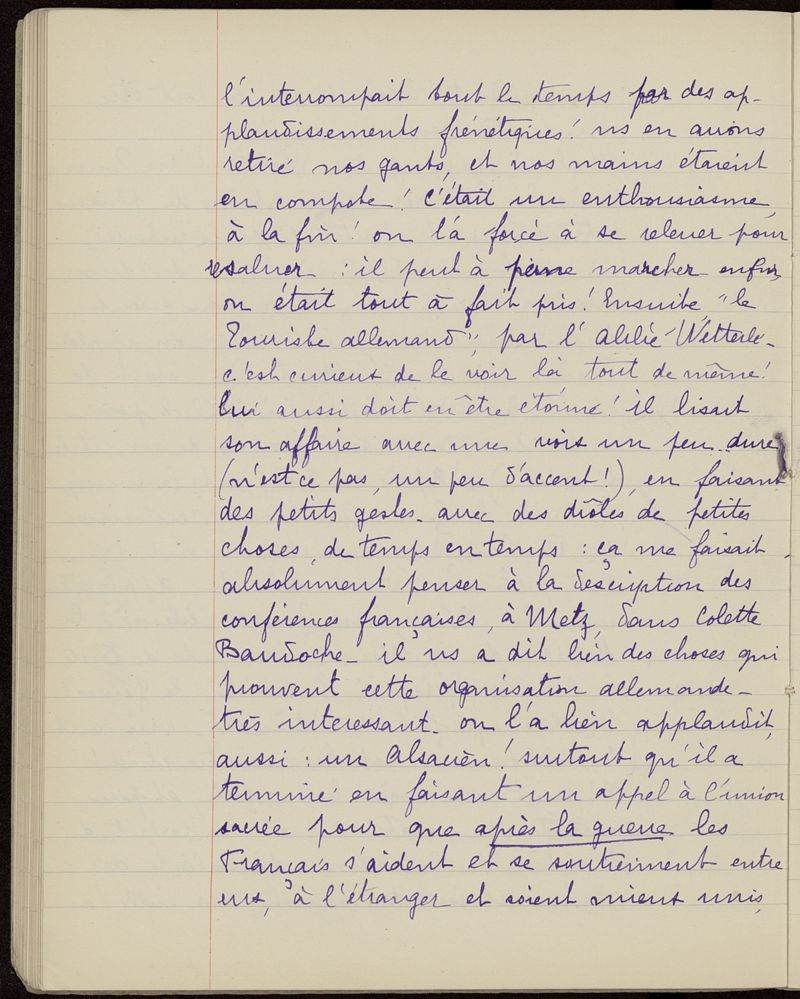 l'interrompait tout le temps par des ap-
plaudissements frénétiques! ns en avions
retiré nos gants, et nos mains étaient
en compote! C'était un enthousiasme,
à la fin! on l'a forcé à se relever pour
resaluer : il peut à peine marcher enfin,
on était tout à fait pris! Ensuite "le
Touriste allemand", par l'Abbé Wetterlé -
c'est curieux de le voir là tout de même!
Lui aussi doit en être étonné! il lisait
son affaire avec une voix un peu dure
(n'est ce pas, un peu d'accent!), en faisant
des petits gestes - avec des drôles de petites
choses, de temps en temps : ça me faisait
absolument penser à la description des
conférences françaises, à Metz, dans Colette
Baudoche - il ns a dit bien des choses qui
prouvent cette organisation allemande -
très interessant - on l'a bien applaudit,
aussi : un Alsacien! surtout qu'il a
terminé en faisant un appel à l'union
sacrée pour que après la guerre les
Français s'aident et se soutiennent entre
eux, à l'étranger et soient mieux unis,